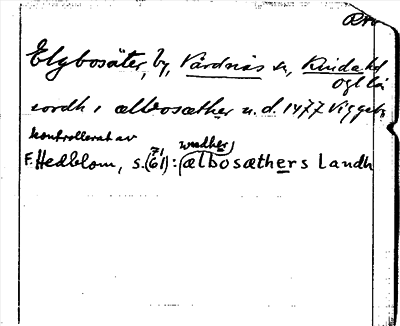 Elgbosäter, by, Vårdnäs sn, Kinda hd
Ögl lä
nordh i ælbosæther u. d. 1477 Viggeby
kontrollerat av
F. Hedblom, s. (61) : ælbosæthers Landh
71